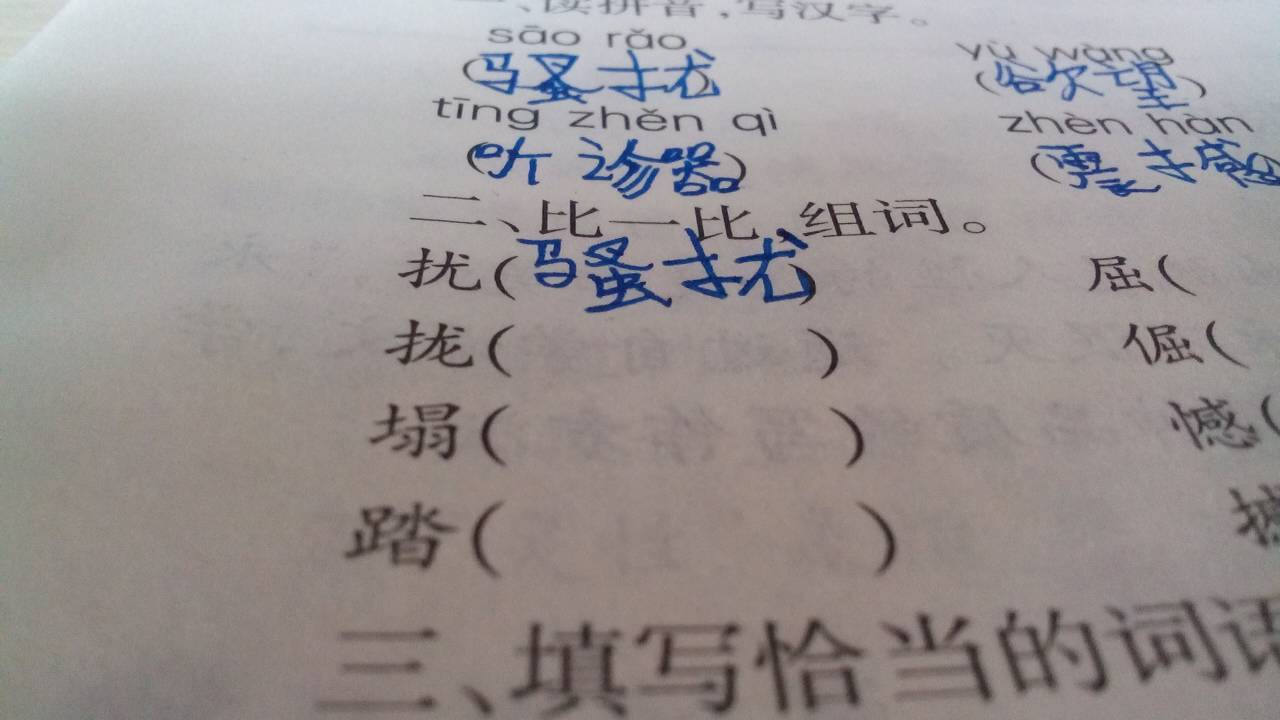 一、读拼音,写汉字。
sāo rǎo yù wàng
(骚扰) (欲望)
tīng zhěn qì zhèn hàn
(听诊器) (震撼
二、比一比,组词。
扰(骚扰) 屈(
拢( ) 倔(
塌( ) 憾(
踏( ) 撼
三、填写恰当的词语